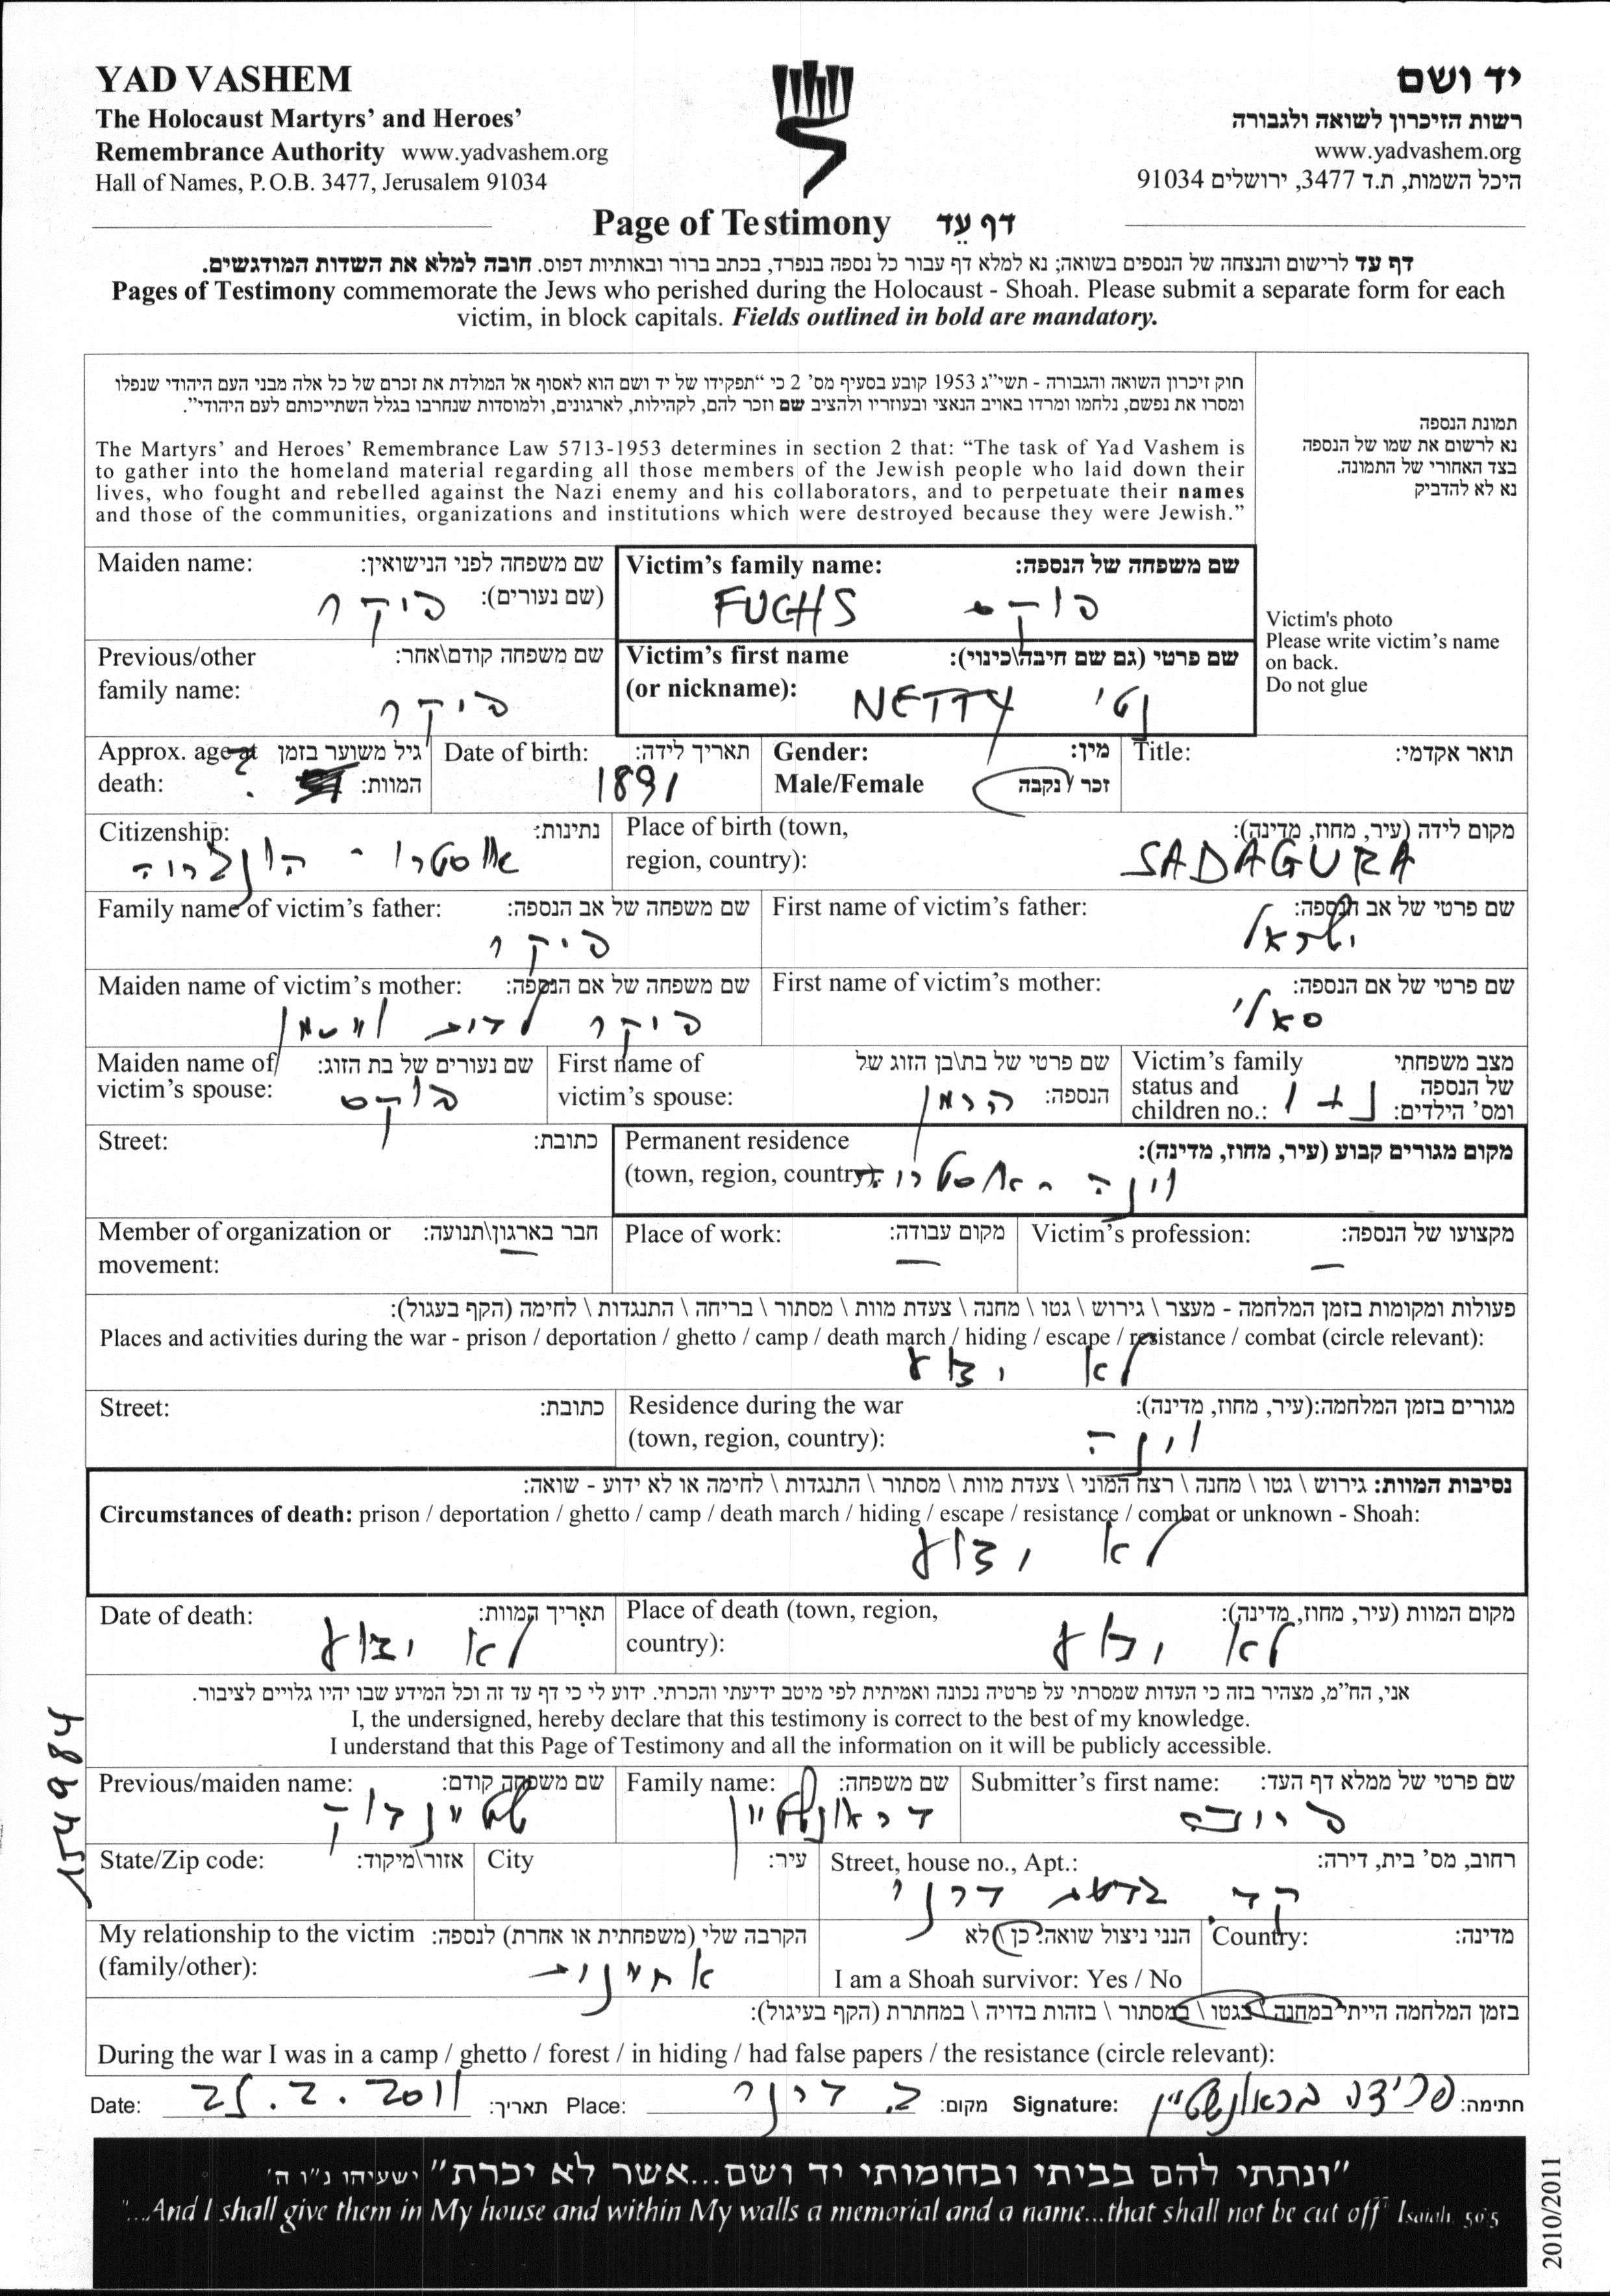 YAD VASHEM
The Holocaust Martyrs' and Heroes'
Remembrance Authority www.yadvashem.org
Hall of Names, P.O.B. 3477, Jerusalem 91034
יד ושם
רשות הזיכרון לשואה ולגבורה
www.yadvashem.org
היכל השמות, ת.ד 3477, ירושלים 91034
Page of Testimony דף עֵד
דף עד לרישום והנצחה של הנספים בשואה; נא למלא דף עבור כל נספה בנפרד, בכתב ברור ובאותיות דפוס. חובה למלא את השדות המודגשים.
Pages of Testimony commemorate the Jews who perished during the Holocaust - Shoah. Please submit a separate form for each
victim, in block capitals. Fields outlined in bold are mandatory.
חוק זיכרון השואה והגבורה - תשי"ג 1953 קובע בסעיף מס' 2 כי "תפקידו של יד ושם הוא לאסוף אל המולדת את זכרם של כל אלה מבני העם היהודי שנפלו
ומסרו את נפשם, נלחמו ומרדו באויב הנאצי ובעוזריו ולהציב שם וזכר להם, לקהילות, לארגונים, ולמוסדות שנחרבו בגלל השתייכותם לעם היהודי".
The Martyrs' and Heroes' Remembrance Law 5713-1953 determines in section 2 that: "The task of Yad Vashem is
to gather into the homeland material regarding all those members of the Jewish people who laid down their
lives, who fought and rebelled against the Nazi enemy and his collaborators, and to perpetuate their names
and those of the communities, organizations and institutions which were destroyed because they were Jewish."
תמונת הנספה
נא לרשום את שמו של הנספה
בצד האחורי של התמונה.
נא לא להדביק
Victim's photo
Please write victim's name
on back.
Do not glue
Maiden name: שם משפחה לפני הנישואין:
(שם נעורים):
פיקר
Victim's family name: שם משפחה של הנספה:
FUCHS פוקס
Previous/other שם משפחה קודם\אחר:
family name:
פיקר
Victim's first name שם פרטי (גם שם חיבה\כינוי):
(or nickname):
NETTY נטי
Approx. age at גיל משוער בזמן
death: המוות:
?
Date of birth: תאריך לידה:
1891
Gender: מין:
Male/Female זכר / נקבה
Title: תואר אקדמי:
Citizenship: נתינות:
אוסטרו - הונגריה
Place of birth (town, מקום לידה (עיר, מחוז, מדינה):
region, country):
SADAGURA
Family name of victim's father: שם משפחה של אב הנספה:
פיקר
First name of victim's father: שם פרטי של אב הנספה:
ישראל
Maiden name of victim's mother: שם משפחה של אם הנספה:
פיקר לבית
First name of victim's mother: שם פרטי של אם הנספה:
סאלי
Maiden name of שם נעורים של בת הזוג:
victim's spouse:
פוקס
First name of שם פרטי של בת\בן הזוג של
victim's spouse: הנספה:
הרמן
Victim's family מצב משפחתי
status and של הנספה
children no.: ומס' הילדים:
נ + 1
Street: כתובת:
Permanent residence מקום מגורים קבוע (עיר, מחוז, מדינה):
(town, region, country):
וינה - אוסטריה
Member of organization or חבר בארגון\תנועה:
movement:
—
Place of work: מקום עבודה:
—
Victim's profession: מקצועו של הנספה:
—
פעולות ומקומות בזמן המלחמה - מעצר \ גירוש \ גטו \ מחנה \ צעדת מוות \ מסתור \ בריחה \ התנגדות \ לחימה (הקף בעגול):
Places and activities during the war - prison / deportation / ghetto / camp / death march / hiding / escape / resistance / combat (circle relevant):
לא ידוע
Street: כתובת:
Residence during the war מגורים בזמן המלחמה:(עיר, מחוז, מדינה):
(town, region, country):
וינה
נסיבות המוות: גירוש \ גטו \ מחנה \ רצח המוני \ צעדת מוות \ מסתור \ התנגדות \ לחימה או לא ידוע - שואה:
Circumstances of death: prison / deportation / ghetto / camp / death march / hiding / escape / resistance / combat or unknown - Shoah:
לא ידוע
Date of death: תאריך המוות:
לא ידוע
Place of death (town, region, מקום המוות (עיר, מחוז, מדינה):
country):
לא ידוע
אני, הח"מ, מצהיר בזה כי העדות שמסרתי על פרטיה נכונה ואמיתית לפי מיטב ידיעתי והכרתי. ידוע לי כי דף עד זה וכל המידע שבו יהיו גלויים לציבור.
I, the undersigned, hereby declare that this testimony is correct to the best of my knowledge.
I understand that this Page of Testimony and all the information on it will be publicly accessible.
Previous/maiden name: שם משפחה קודם:
שטיינבוק
Family name: שם משפחה:
בראונשטיין
Submitter's first name: שם פרטי של ממלא דף העד:
פרידה
State/Zip code: אזור\מיקוד:
City עיר:
Street, house no., Apt.: רחוב, מס' בית, דירה:
קד.
My relationship to the victim הקרבה שלי (משפחתית או אחרת) לנספה:
(family/other):
אחיינית
הנני ניצול שואה: כן \ לא
I am a Shoah survivor: Yes / No
Country: מדינה:
בזמן המלחמה הייתי במחנה \ בגטו \ במסתור \ בזהות בדויה \ במחתרת (הקף בעיגול):
During the war I was in a camp / ghetto / forest / in hiding / had false papers / the resistance (circle relevant):
Date: 25.2.2011 תאריך: Place: מקום: Signature: פרידה בראונשטיין חתימה:
"ונתתי להם בביתי ובחומותי יד ושם...אשר לא יכרת" ישעיהו נ"ו ה'
"...And I shall give them in My house and within My walls a memorial and a name...that shall not be cut off" Isaiah 56:5
154984
2010/2011